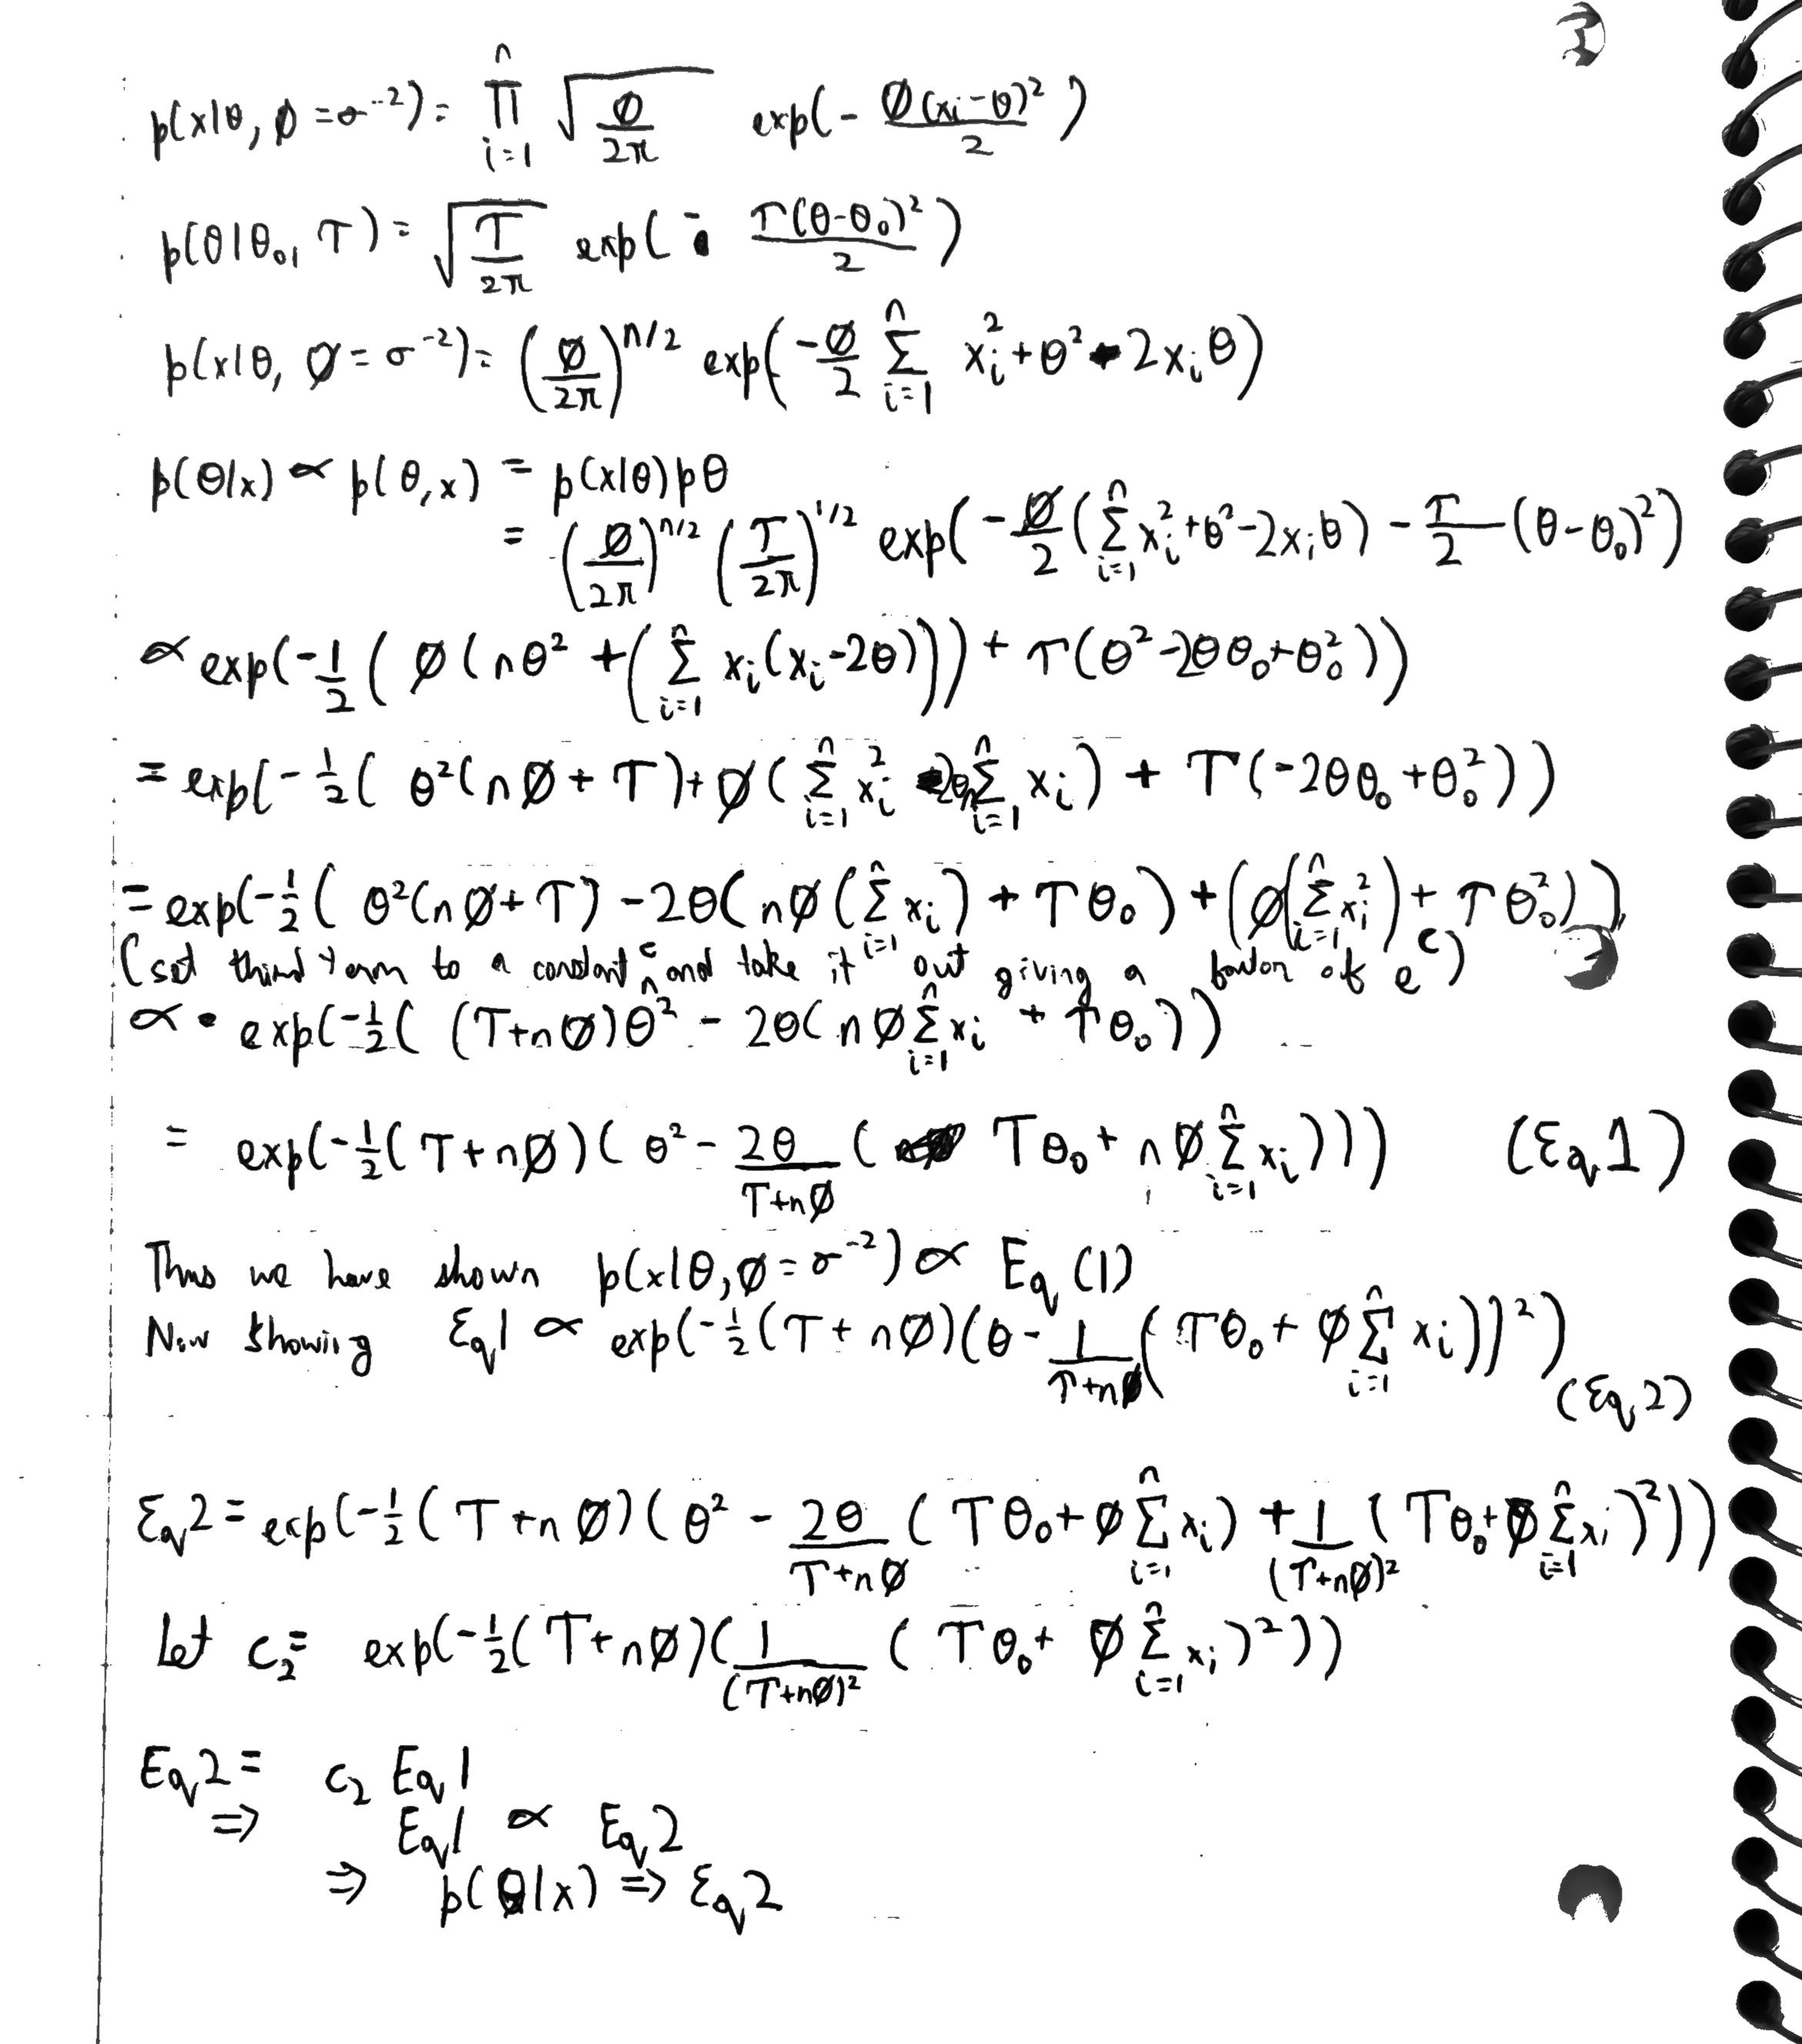 p(x|θ, ϕ = σ⁻²) = ∏_{i=1}^{n} √(ϕ/2π) exp(- ϕ(xᵢ-θ)²/2)
p(θ|θ₀, τ) = √(τ/2π) exp(- τ(θ-θ₀)²/2)
p(x|θ, ϕ = σ⁻²) = (ϕ/2π)^{n/2} exp(-ϕ/2 ∑_{i=1}^{n} xᵢ² + θ² - 2xᵢθ)
p(θ|x) ∝ p(θ,x) = p(x|θ)pθ
= (ϕ/2π)^{n/2} (τ/2π)^{1/2} exp(-ϕ/2 (∑_{i=1}^{n} xᵢ² + θ² - 2xᵢθ) - τ/2 (θ-θ₀)²)
∝ exp(-½ ( ϕ (nθ² + (∑_{i=1}^{n} xᵢ(xᵢ-2θ))) + τ(θ²-2θθ₀+θ₀²))
= exp(-½( θ²(nϕ + τ) + ϕ(∑_{i=1}^{n} xᵢ² -2θ∑_{i=1}^{n} xᵢ) + τ(-2θθ₀ + θ₀²))
= exp(-½( θ²(nϕ+τ) -2θ(nϕ(∑_{i=1}^{n} xᵢ) + τθ₀) + (ϕ(∑_{i=1}^{n} xᵢ²) + τθ₀²))
(set third term to a constant c and take it out giving a factor of e^c)
∝ exp(-½( (τ+nϕ)θ² - 2θ(nϕ∑_{i=1}^{n} xᵢ + τθ₀))
= exp(-½(τ+nϕ)( θ² - 2θ/(τ+nϕ) ( τθ₀ + nϕ∑_{i=1}^{n} xᵢ))) (Eq 1)
Thus we have shown p(x|θ, ϕ = σ⁻²) ∝ Eq (1)
Now Showing Eq1 ∝ exp(-½(τ + nϕ)(θ - 1/(τ+nϕ) (τθ₀ + ϕ∑_{i=1}^{n} xᵢ))²) (Eq 2)
Eq 2 = exp(-½(τ+nϕ)(θ² - 2θ/(τ+nϕ) (τθ₀+ϕ∑_{i=1}^{n} xᵢ) + 1/(τ+nϕ)² (τθ₀+ϕ∑_{i=1}^{n} xᵢ)²))
Let c₂ = exp(-½(τ+nϕ)(1/(τ+nϕ)² (τθ₀+ ϕ∑_{i=1}^{n} xᵢ)²))
Eq 2 = c₂ Eq 1
⇒ Eq1 ∝ Eq 2
⇒ p(θ|x) ⇒ Eq 2